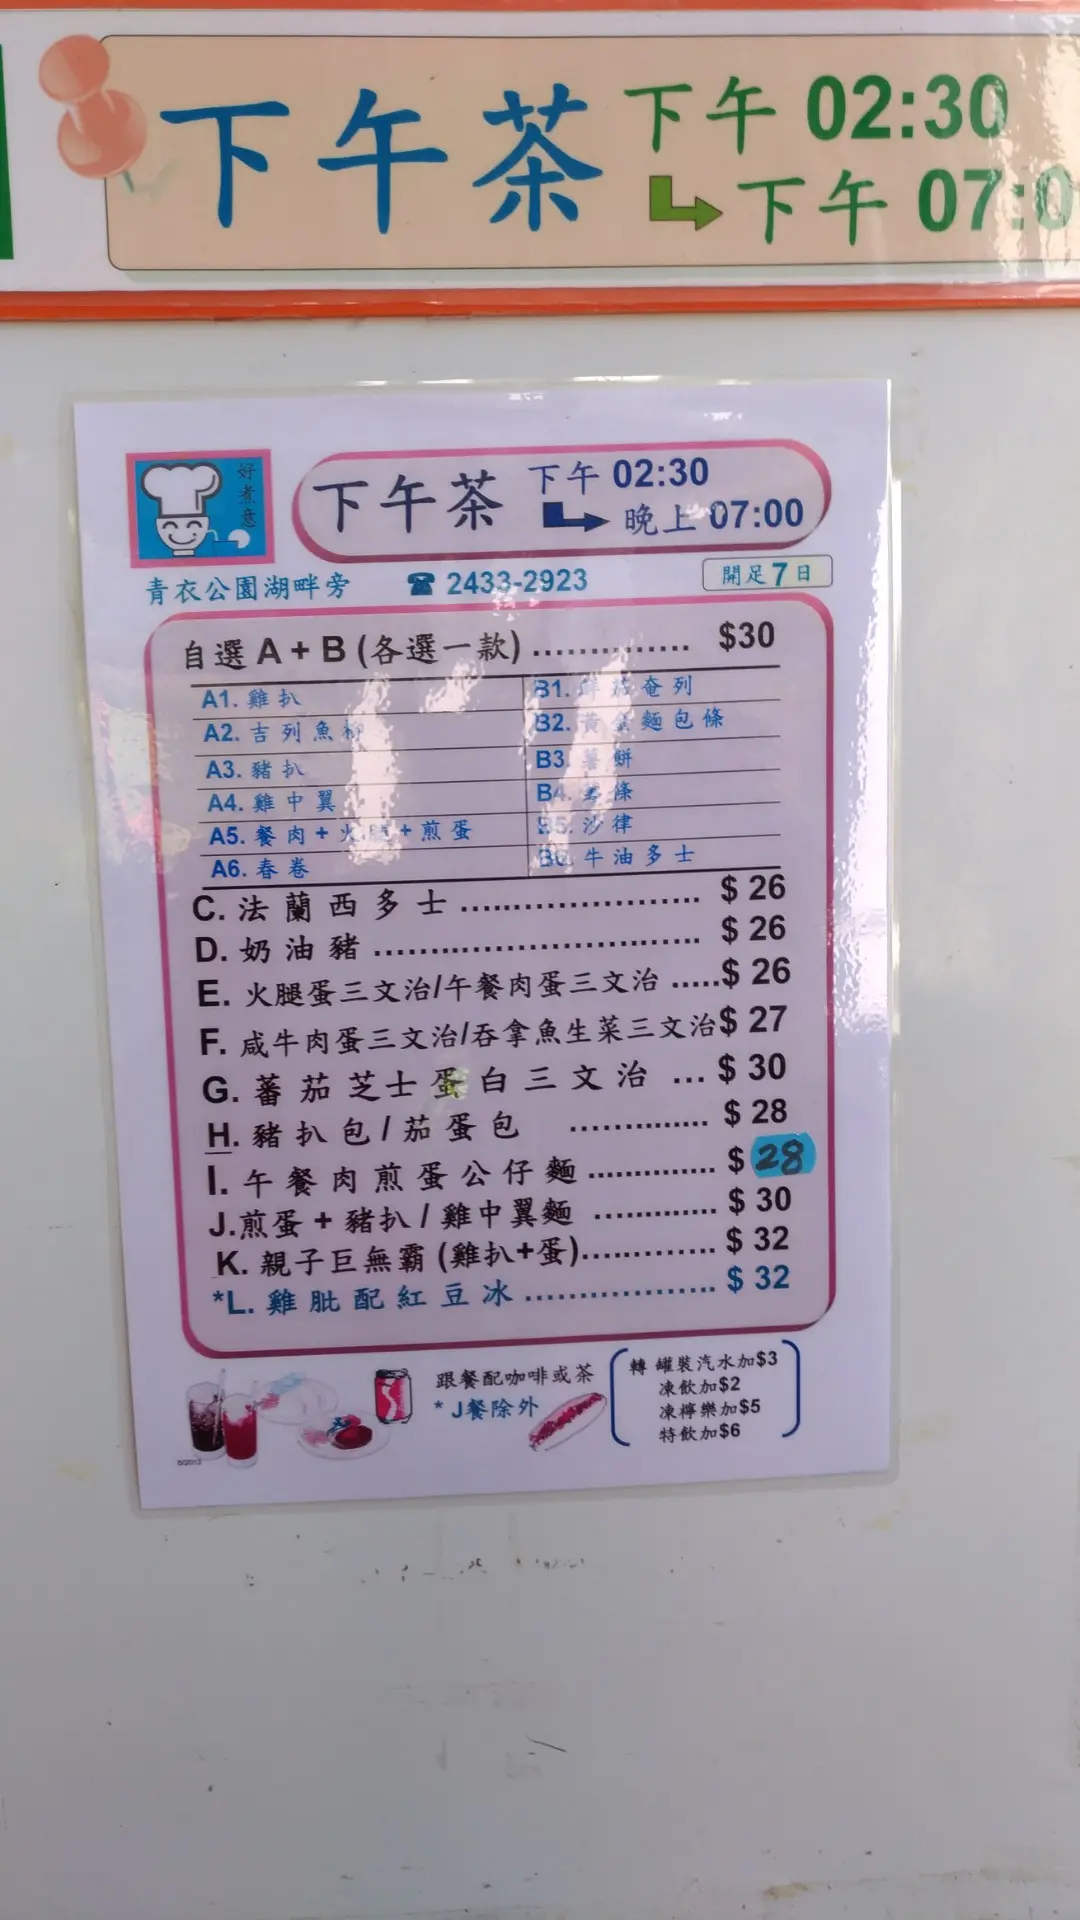 下午茶 下午 02:30
下午 07:0
好煮意
下午茶 下午 02:30
晚上 07:00
青衣公園湖畔旁 ☎ 2433-2923 開足7日
自選 A + B (各選一款) .............. $30
A1. 雞扒
B1. 奄列
A2. 吉列魚柳
B2. 黃 麵包條
A3. 豬扒
B3. 薯餅
A4. 雞中翼
B4. 條
A5. 餐肉 + 火腿 + 煎蛋
B5. 沙律
A6. 春卷
B6. 牛油多士
C. 法蘭西多士 ........................ $ 26
D. 奶油豬 ................................ $ 26
E. 火腿蛋三文治/午餐肉蛋三文治 .....$ 26
F. 咸牛肉蛋三文治/吞拿魚生菜三文治$ 27
G. 蕃茄芝士蛋白三文治 ... $ 30
H. 豬扒包/茄蛋包 ............. $ 28
I. 午餐肉煎蛋公仔麵.............. $ 28
J.煎蛋 + 豬扒 / 雞中翼麵 ............. $ 30
K. 親子巨無霸 (雞扒+蛋).............. $ 32
*L. 雞肶配紅豆冰 .................... $ 32
跟餐配咖啡或茶
* J餐除外
轉 罐裝汽水加$3
凍飲加$2
凍檸樂加$5
特飲加$6
6/2013